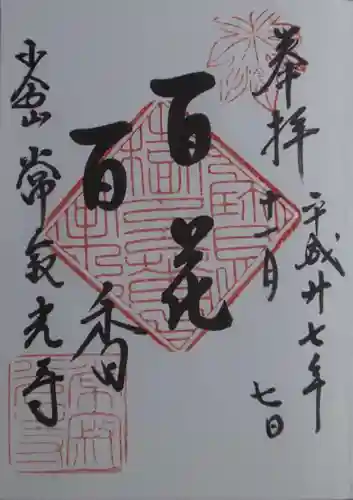 奉拝
平成廿七年
十一月
七日
百花
百香
小倉山
常寂光寺